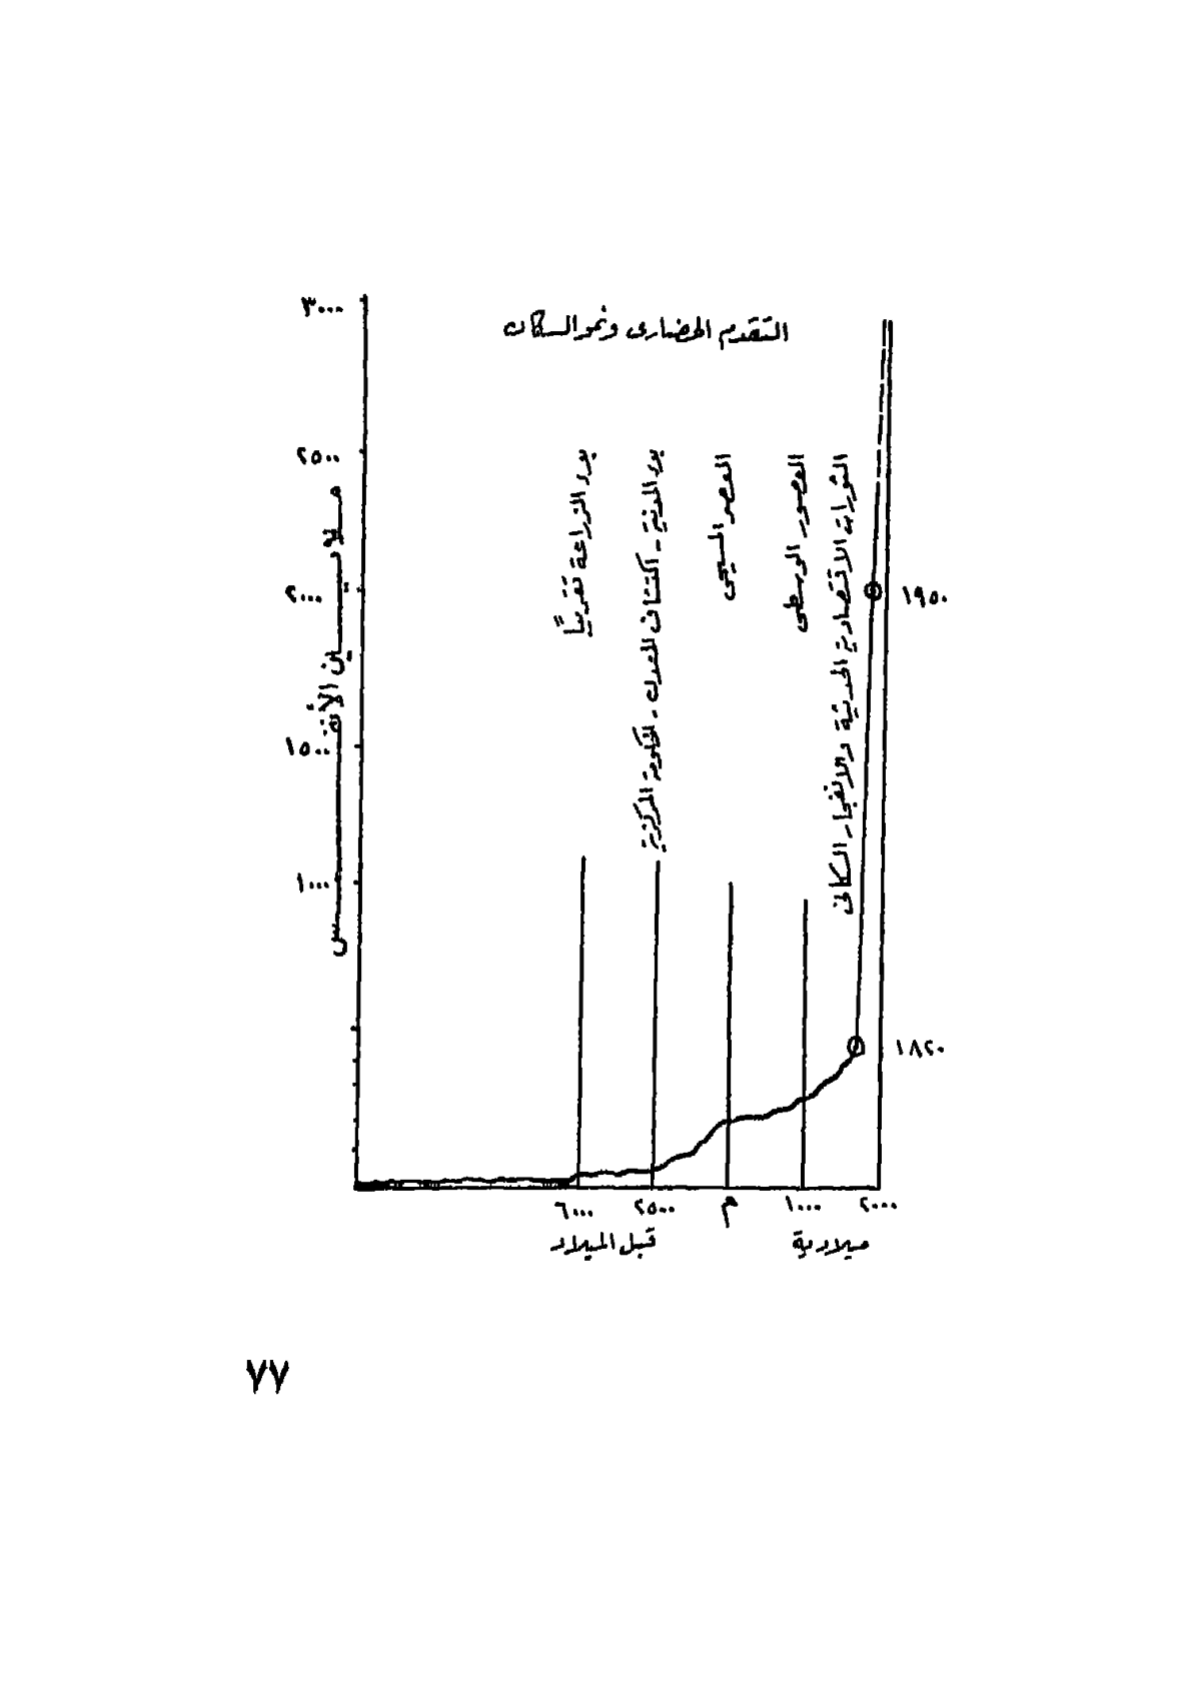 التقدم الحضارى ونمو السكان
٣٠٠٠
٢٥٠٠
٢٠٠٠
١٥٠٠
١٠٠٠
ملايين الأنفس
بدء الزراعة تقريبًا
بدء المدنية - اكتشاف المعدن - الحكومة المركزية
العصر المسيحى
العصور الوسطى
الثورات الاقتصادية الحديثة والانفجار السكانى
١٩٥٠
١٨٢٠
٦٠٠٠ ٢٥٠٠ م ١٠٠٠ ٢٠٠٠
قبل الميلاد ميلادية
٧٧